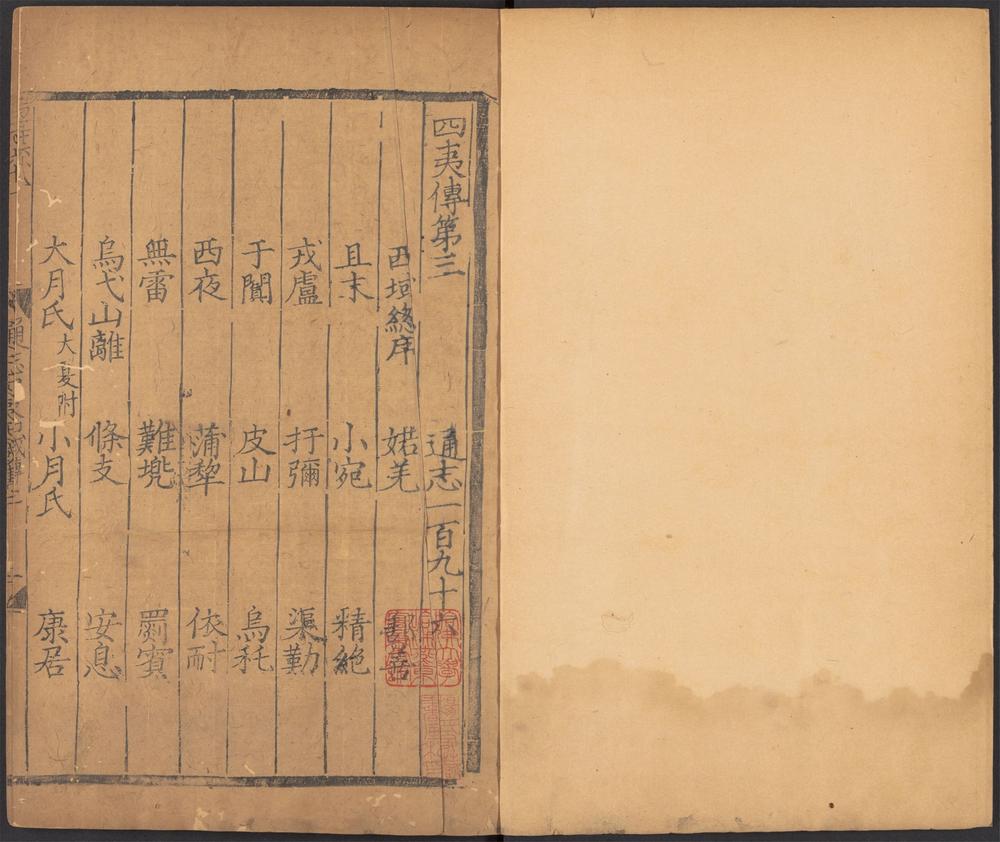 四夷傳第三 通志一百九十六
西域總序 婼羌 鄯善
且末 小宛 精絶
戎盧 扜彌 渠勒
于闐 皮山 烏秅
西夜 蒲犂 依耐
無雷 難兠 罽賓
烏弋山離 條支 安息
大月氏 大夏附 小月氏 康居